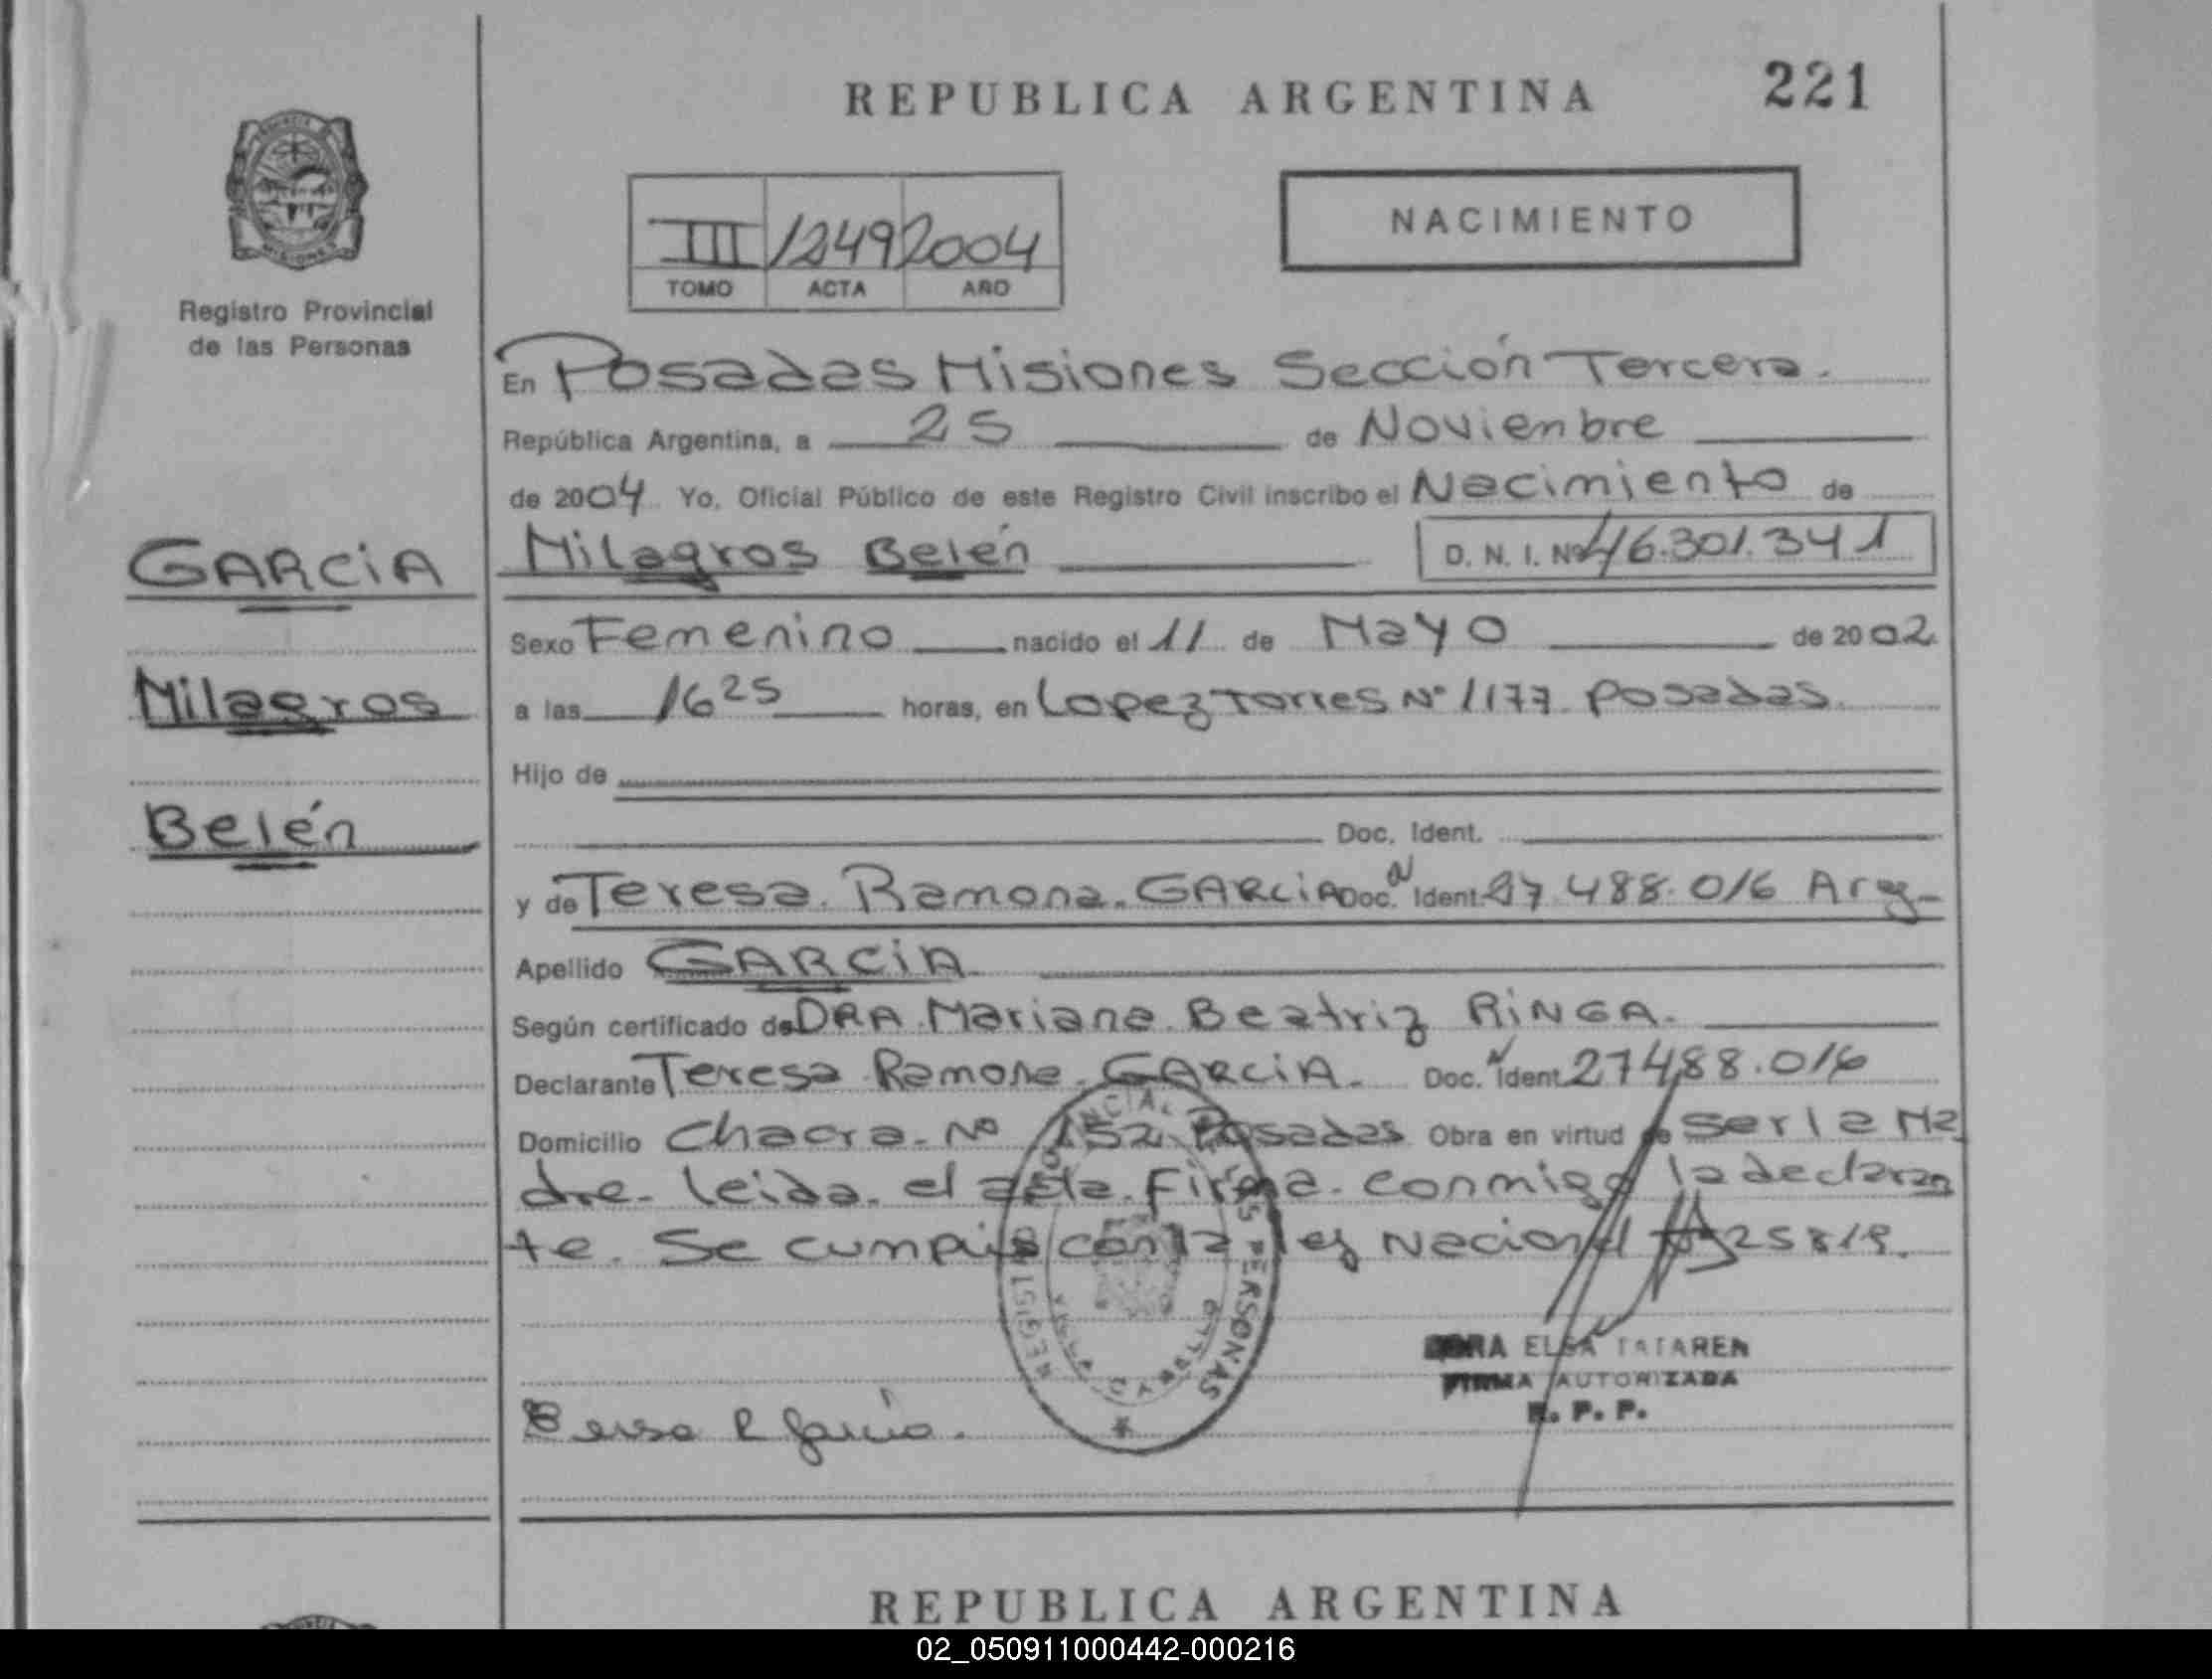 REPUBLICA ARGENTINA 221
MISIONES
Registro Provincial
de las Personas
III 1249 2004
TOMO ACTA AÑO
NACIMIENTO
En Posadas Misiones Sección Tercera.
República Argentina, a 25 de Noviembre
de 2004 Yo, Oficial Público de este Registro Civil inscribo el Nacimiento de
GARCIA Milagros Belén D. N. I. Nº 46.301.341
Sexo Femenino nacido el 11 de Mayo de 2002
Milagros a las 16 25 horas, en Lopez Torres Nº 1177 Posadas.
Hijo de
Belén
Doc. Ident.
y de Teresa Ramona GARCIA Doc. Ident. 27.488.016 Arg-
Apellido GARCIA
Según certificado de DRA Mariana Beatriz RINGA.
Declarante Teresa Ramona GARCIA. Doc. Ident 27488.016
Domicilio Chacra Nº 152 Posadas Obra en virtud de ser la Ma
dre. leida el acta Firma conmigo la declaran
te. Se cumplió con la ley Nacional 25819.
REGISTRO PROVINCIAL PERSONAS
ELSA TATAREN
FIRMA AUTORIZADA
R. P. P.
Teresa R García.
REPUBLICA ARGENTINA
02_050911000442-000216